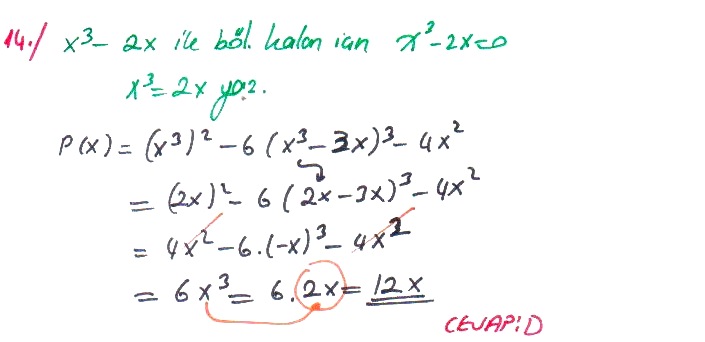 14./ x³ - 2x ile böl. kalan için x³-2x=0
x³=2x yaz.
P(x) = (x³)² - 6 (x³ - 3x)³ - 4x²
= (2x)² - 6 (2x - 3x)³ - 4x²
= 4x² - 6.(-x)³ - 4x²
= 6x³ = 6.2x = 12x
CEVAP: D